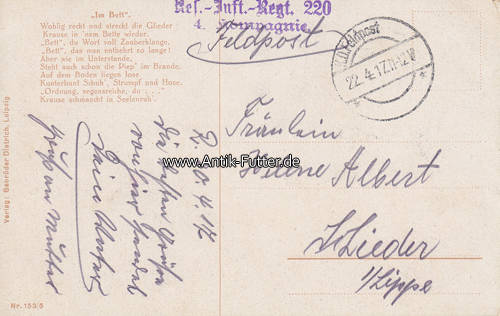 „Im Bett".
Wohlig reckt und streckt die Glieder
Krause in 'nem Bette wieder.
„Bett", du Wort voll Zauberklange,
„Bett", das man entbehrt so lange!
Aber wie im Unterstande,
Steht auch schon die Piep' im Brande.
Auf dem Boden liegen lose
Kunterbunt Schuh', Strumpf und Hose.
„Ordnung, segensreiche, du . . ."
Krause schmaucht in Seelenruh'.
Res.-Inft.-Regt. 220
4. Kompagnie
Feldpost
Feldpost
22.4.17.11-12V
www.Antik-Futter.de
Fräulein
Albert
Lieder
Lippe
Die besten Grüße
Deine
Gruß an Mutter
Verlag: Gebrüder Dietrich, Leipzig
Nr. 153/6